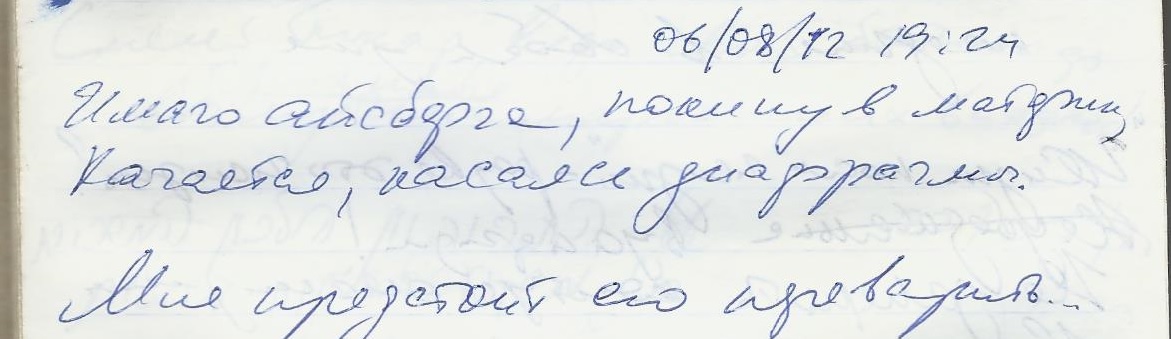 06/08/12 19:24
Имаго айсберга, покинув матджиц,
Качается, касаясь диафрагмы.
Мне предстоит его переварить...